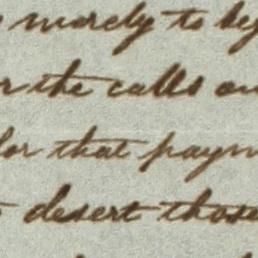 merely to be
the calls
for that paym
desert those